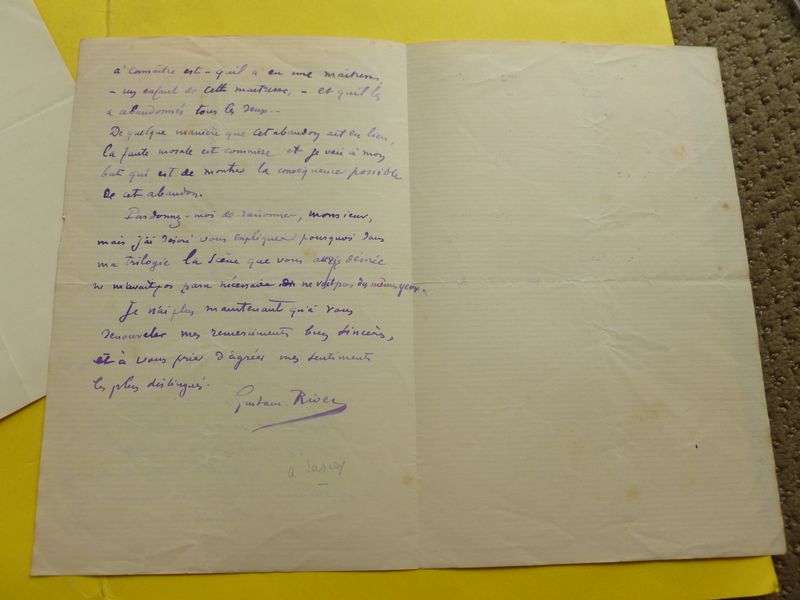 à connaître est - qu'il a eu une maîtresse,
- un enfant de cette maîtresse, - et qu'il les
a abandonnés tous les deux. -
De quelque manière que cet abandon ait eu lieu,
la faute morale est commise et je vais à mon
but qui est de montrer la conséquence possible
de cet abandon.
Pardonnez-moi de raisonner, monsieur,
mais j'ai désiré vous expliquer pourquoi dans
ma trilogie la scène que vous aviez désirée
ne m'avait pas paru nécessaire. On ne voit pas des mêmes yeux.
Je n'ai plus maintenant qu'à vous
renouveler mes remerciments bien sincères,
et à vous prier d'agréer mes sentiments
les plus distingués.
Gustave Rivet
à